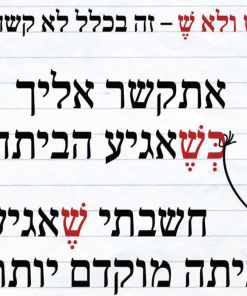 ולא שֶׁ – זה בכלל לא קשה
אתקשר אליך
כְּשֶׁאגיע הביתה
חשבתי שֶׁאגיע
יתה מוקדם יותר